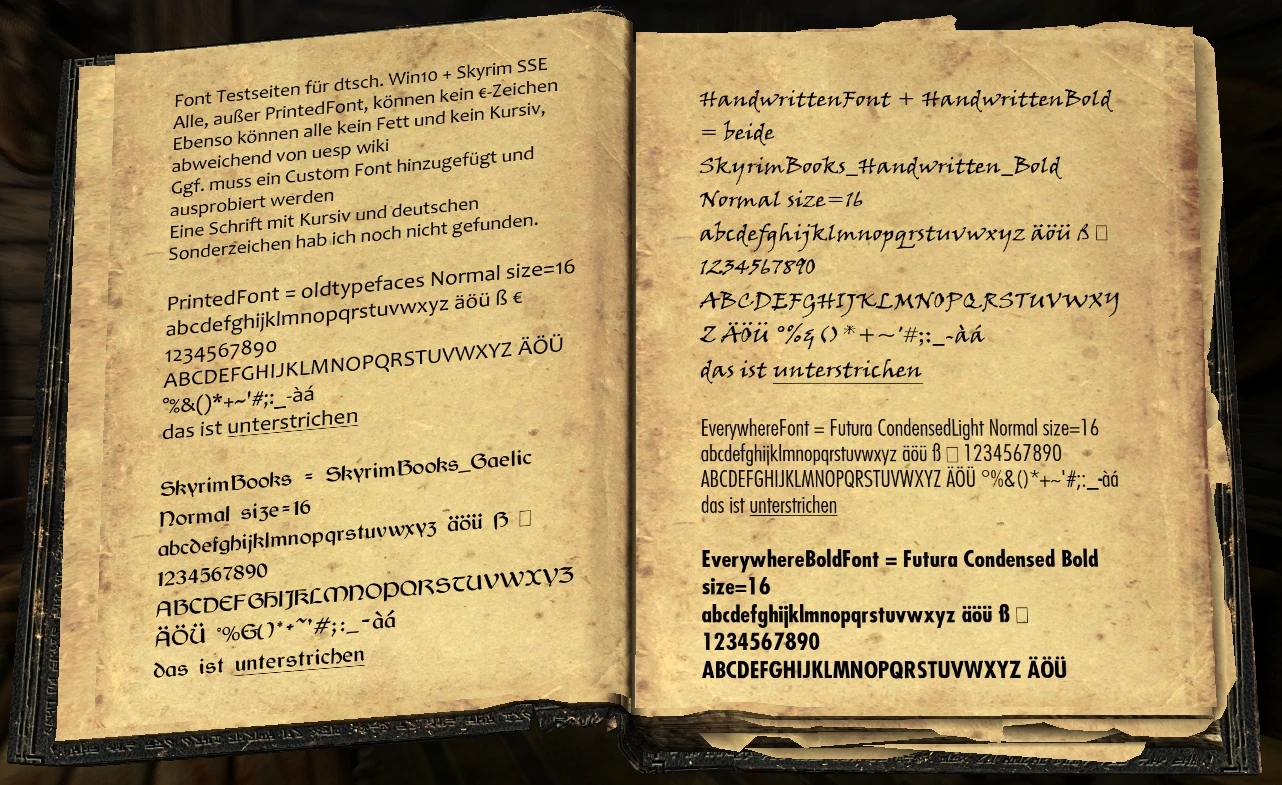 Font Testseiten für dtsch. Win10 + Skyrim SSE
Alle, außer PrintedFont, können kein €-Zeichen
Ebenso können alle kein Fett und kein Kursiv,
abweichend von uesp wiki
Ggf. muss ein Custom Font hinzugefügt und
ausprobiert werden
Eine Schrift mit Kursiv und deutschen
Sonderzeichen hab ich noch nicht gefunden.
PrintedFont = oldtypefaces Normal size=16
abcdefghijklmnopqrstuvwxyz äöü ß €
1234567890
ABCDEFGHIJKLMNOPQRSTUVWXYZ ÄÖÜ
°%&()*+~'#;:_-àá
das ist unterstrichen
SkyrimBooks = SkyrimBooks_Gaelic
Normal size=16
abcdefghijklmnopqrstuvwxyz äöü ß □
1234567890
ABCDEFGHIJKLMNOPQRSTUVWXYZ
ÄÖÜ °%&()*+~'#;:_-àá
das ist unterstrichen
HandwrittenFont + HandwrittenBold
= beide
SkyrimBooks_Handwritten_Bold
Normal size=16
abcdefghijklmnopqrstuvwxyz äöü ß □
1234567890
ABCDEFGHIJKLMNOPQRSTUVWXY
Z ÄÖÜ °%&()*+~'#;:_-àá
das ist unterstrichen
EverywhereFont = Futura CondensedLight Normal size=16
abcdefghijklmnopqrstuvwxyz äöü ß □ 1234567890
ABCDEFGHIJKLMNOPQRSTUVWXYZ ÄÖÜ °%&()*+~'#;:_-àá
das ist unterstrichen
EverywhereBoldFont = Futura Condensed Bold
size=16
abcdefghijklmnopqrstuvwxyz äöü ß □
1234567890
ABCDEFGHIJKLMNOPQRSTUVWXYZ ÄÖÜ